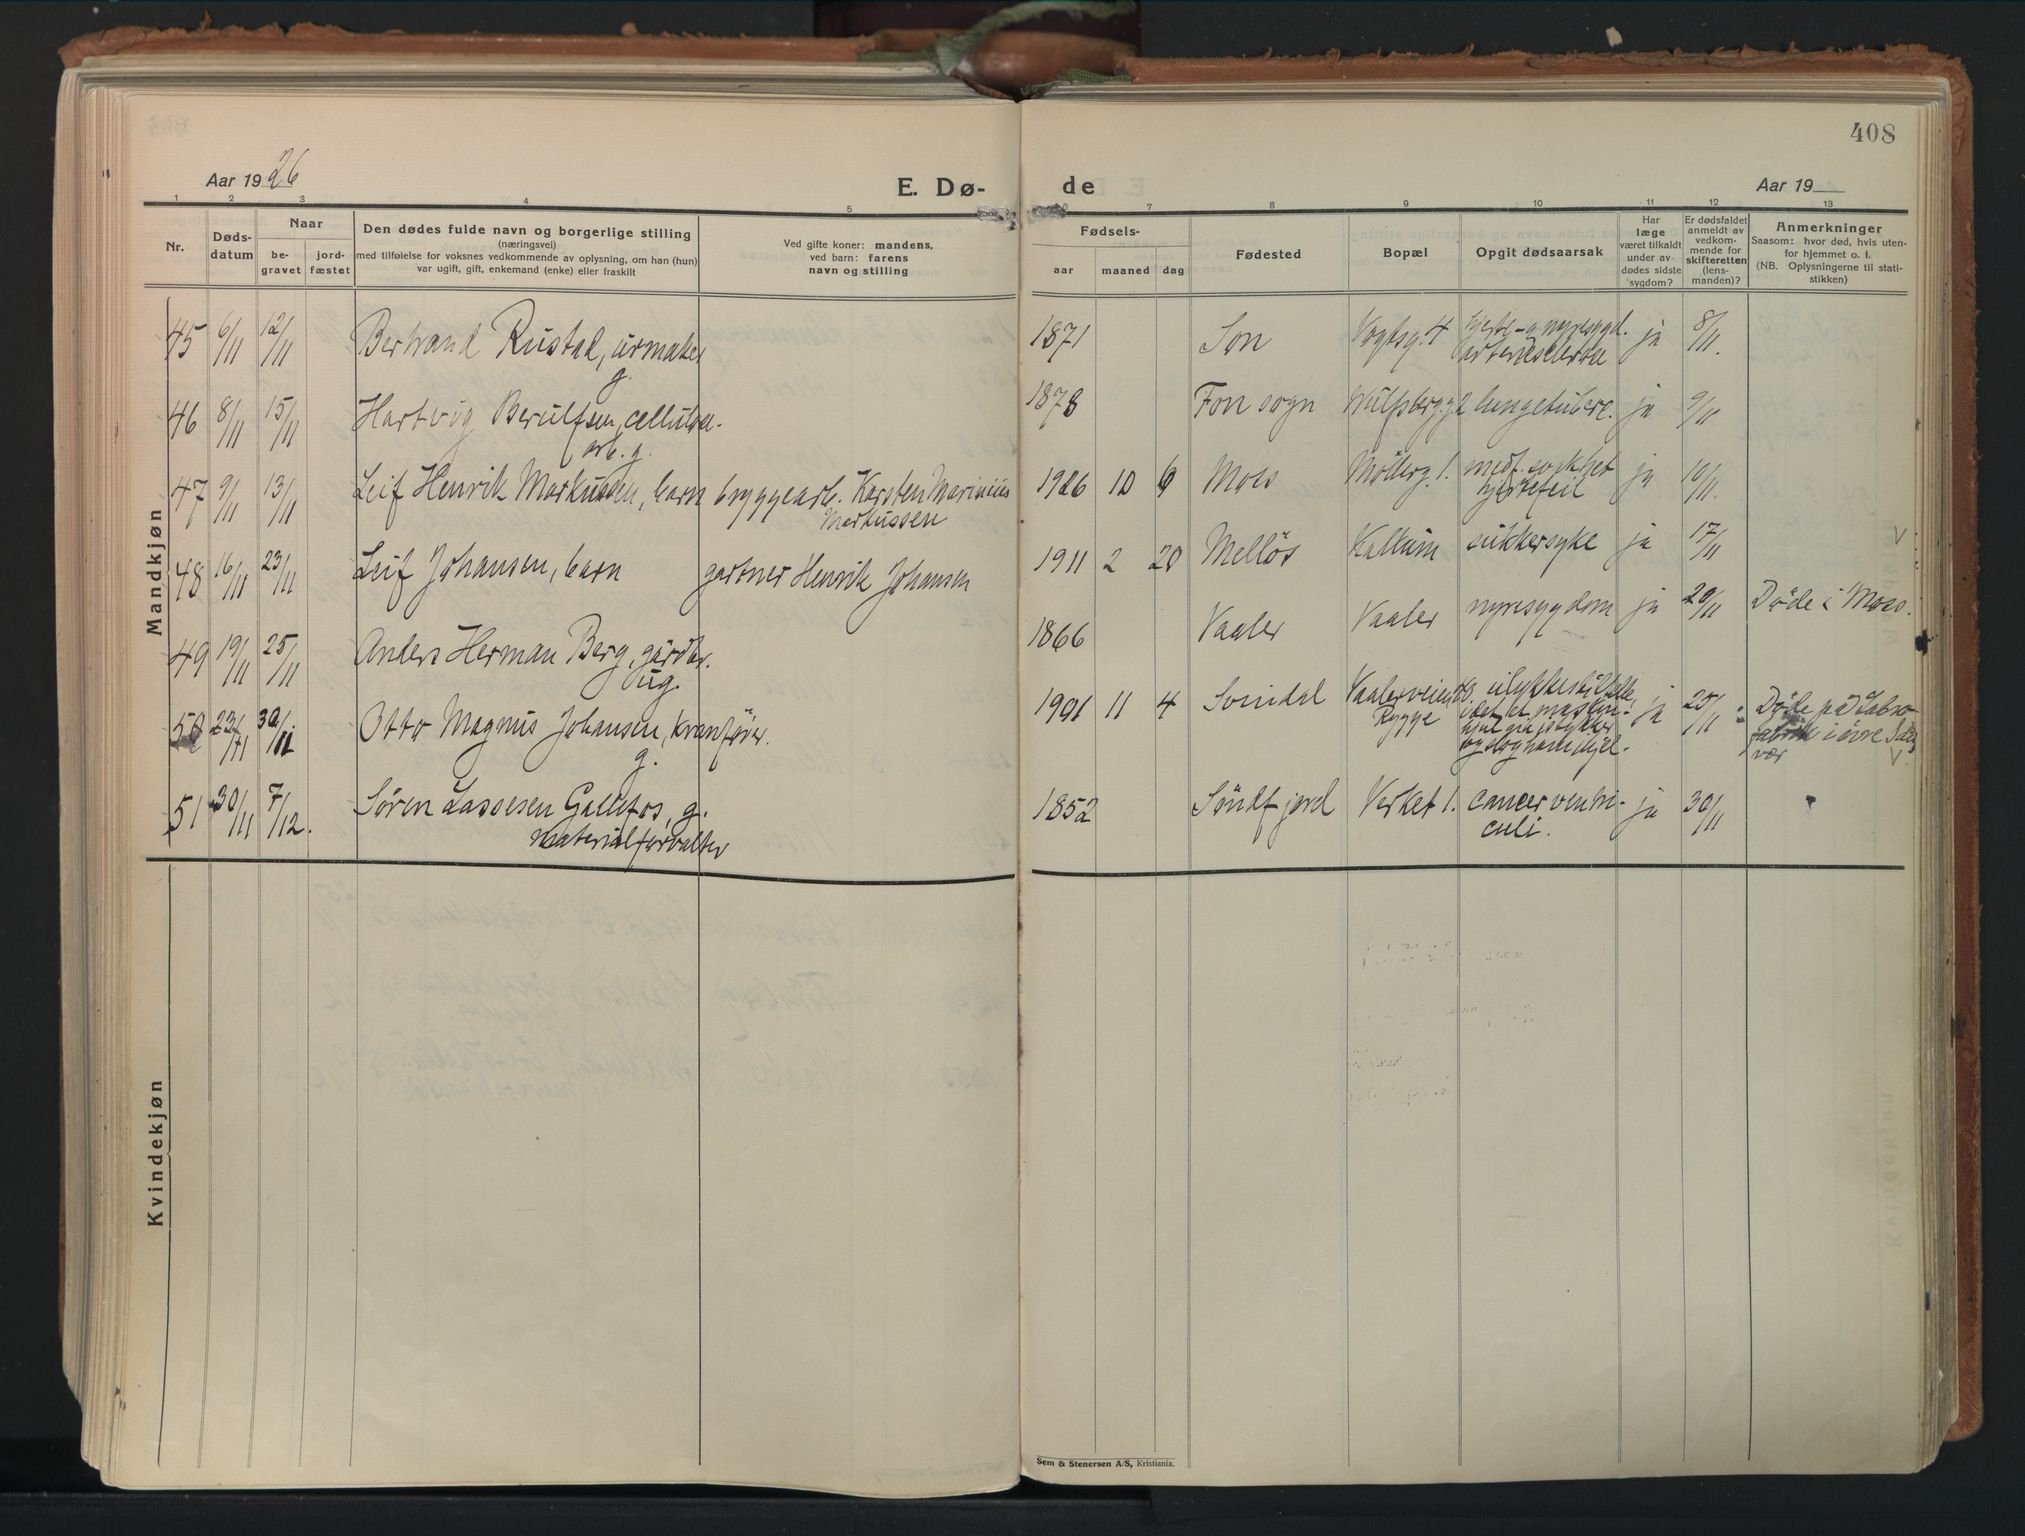 408
Aar 1926
E. Dø-
de
Aar 19
1 2 3 4 5 6 7 8 9 10 11 12 13
Nr.
Døds-
datum
Naar
be-
gravet
jord-
fæstet
Den dødes fulde navn og borgerlige stilling
(næringsvei)
med tilføielse for voksnes vedkommende av oplysning, om han (hun)
var ugift, gift, enkemand (enke) eller fraskilt
Ved gifte koner: mandens,
ved barn: farens
navn og stilling
Fødsels-
aar
maaned
dag
Fødested
Bopæl
Opgit dødsaarsak
Har
læge
været tilkaldt
under av-
dødes sidste
sygdom?
Er dødsfaldet
anmeldt av
vedkom-
mende for
skifteretten
(lens-
manden)?
Anmerkninger
Saasom: hvor død, hvis uten-
for hjemmet o. l.
(NB. Oplysningerne til stati-
stikken)
Mandkjøn
45 6/11 12/11 Bertrand Rustad, urmaker
g.
1871 Son Vogtsg. 4 hjerte- og nyresygd.
ja 8/11.
46 8/11 15/11 Hartvig Berulfsen, cellulose-
arb. g.
1878 Fon sogn lungetuberc. ja 9/11
47 9/11 13/11 Leif Henrik Markussen, barn bryggearb. Karsten Marinius
Markussen
1926 10 6 Moss Møllerg. 1. medf. svakhet
hjertefeil
ja 10/11.
48 16/11 23/11 Leif Johansen, barn gartner Henrik Johansen
1911 2 20 Melløs Kallum sukkersyke ja 17/11
49 19/11 25/11 Anders Herman Berg, gårdbr.
ug.
1866 Vaaler Vaaler nyresygdom ja 20/11 Døde i Moss.
50 23/11 30/11 Otto Magnus Johansen, kranfører.
g.
1901 11 4 Vaalerveien
Rygge
ulykkestilfelle,
idet et maskin-
hjul gik i stykker
og slog ham ihjel.
ja 25/11
Døde på
fabrik i øvre
51 30/11 7/12. Søren Lassesen Gallefos, g.
materialforvalter
1852 Søndfjord Verket 1. cancer ventri-
culi.
ja 30/11
Kvindekjøn
Sem & Stenersen A/S, Kristiania.